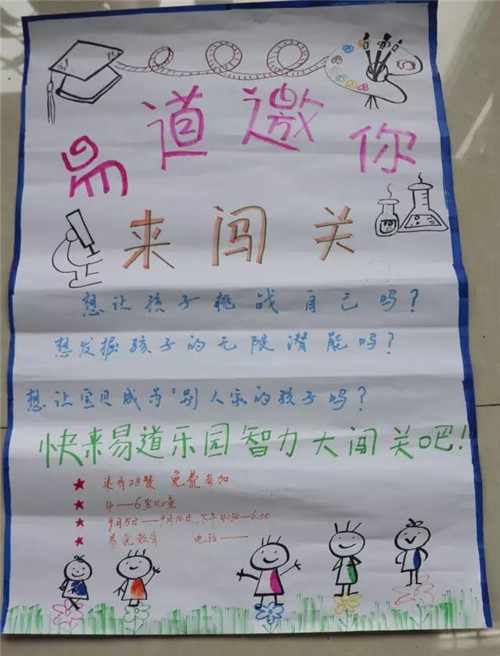 易道邀你
来闯关
想让孩子挑战自己吗?
想发掘孩子的无限潜能吗?
想让宝贝成为"别人家的孩子吗?
快来易道乐园智力大闯关吧!
免费参加
4—6岁儿童
9月5日—9月10日 下午4:30—6:00
易道教育 电话——